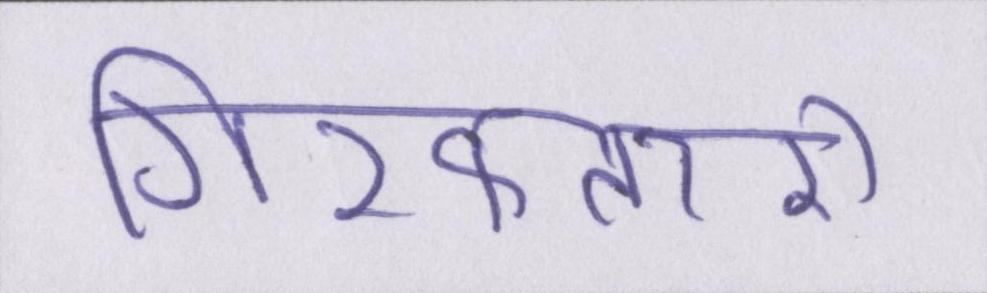 गिरफ्तारी